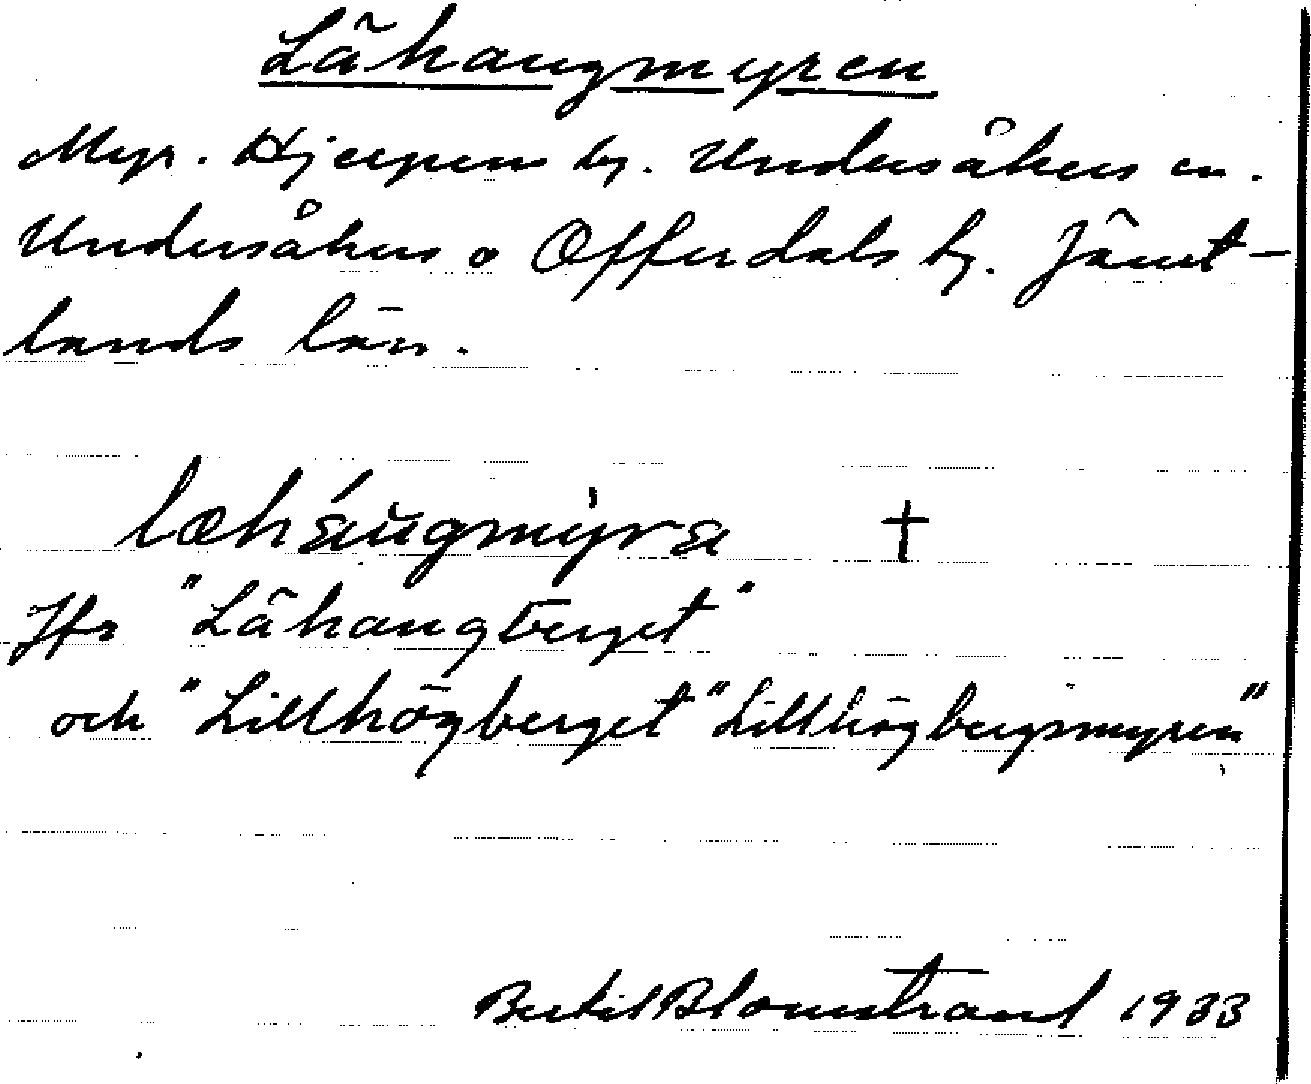 Lähangmyren
Myr. Hjerpens by. Undersåkers sn.
Undersåkers o Offerdals tg. Jämt-
lands län.
læháu̯gmỳra †
Jfr "Lähangberget"
och "Lillhögberget" "Lillhögbergsmyren"
Bertil Blomstrand 1933